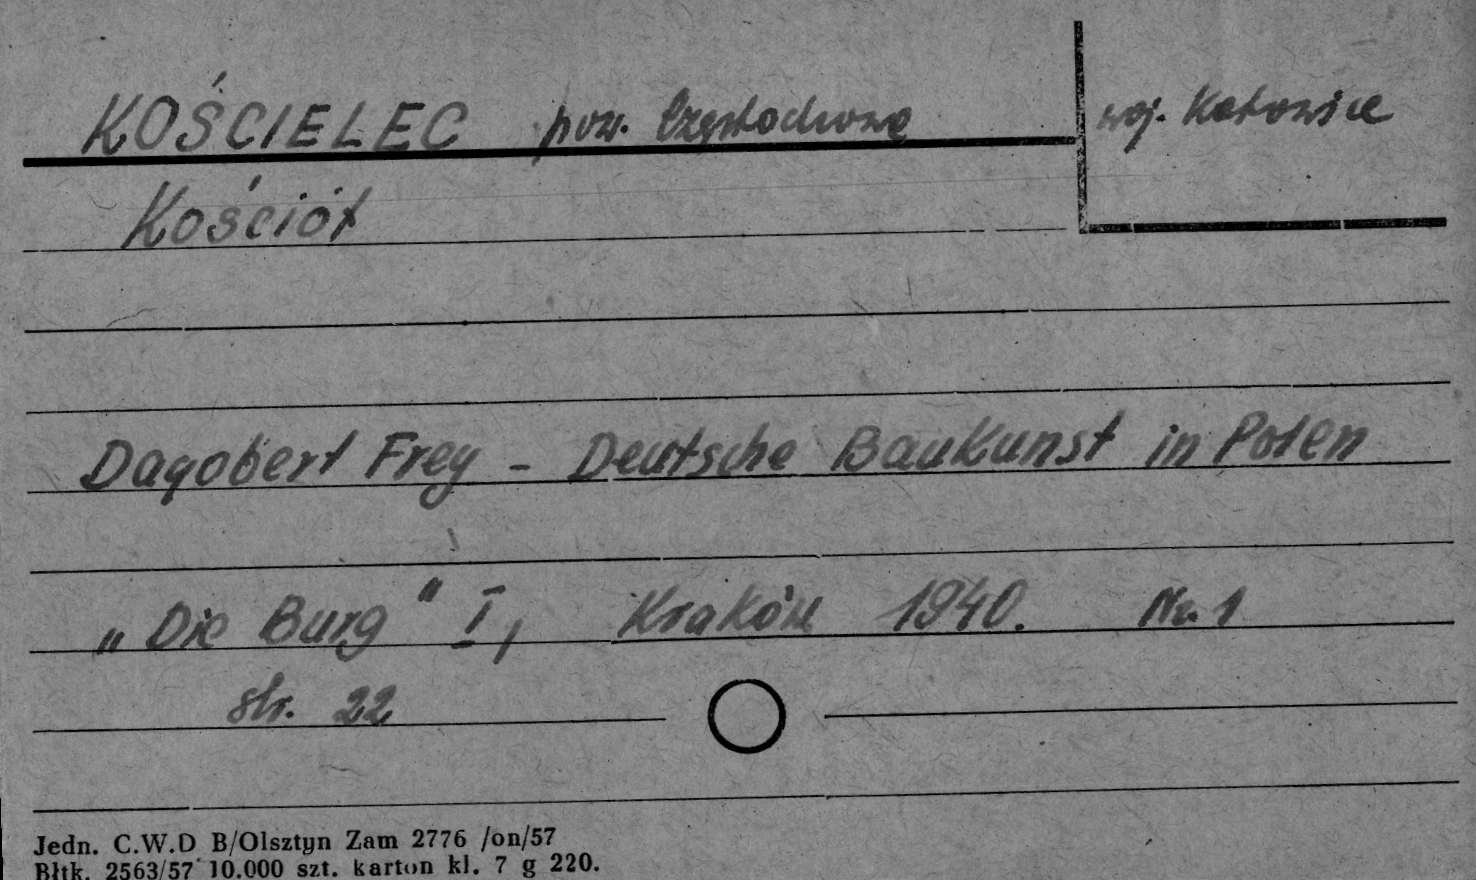 KOŚCIELEC pow. Częstochowa woj. Katowice
Kościół
Dagobert Frey - Deutsche Baukunst in Polen
„Die Burg" I, Kraków 1940. Nr. 1
str. 22
Jedn. C.W.D B/Olsztyn Zam 2776 /on/57
Błtk. 2563/57 10.000 szt. karton kl. 7 g 220.